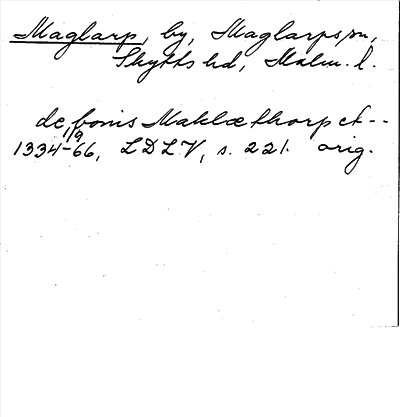 Maglarp, by, Maglarps sn,
Skytts hd, Malm. l.
de bonis Maklæthorp et --
1334-66, LDLV, s. 221. orig.